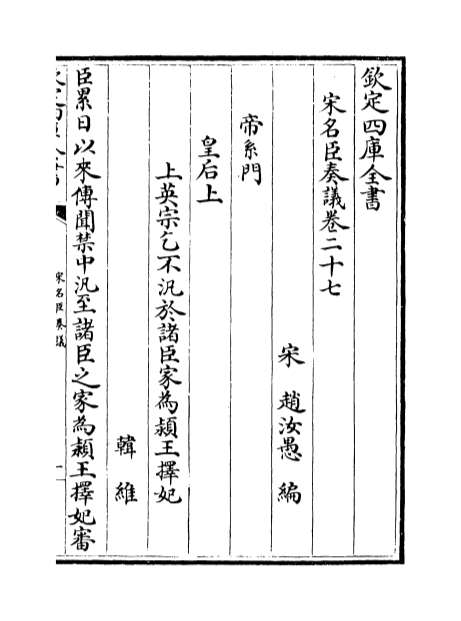 欽定四庫全書
宋名臣奏議卷二十七
宋 趙汝愚 編
帝系門
皇后上
上英宗乞不汎於諸臣家為潁王擇妃
韓維
臣累日以來傳聞禁中汎至諸臣之家為潁王擇妃審
宋名臣奏議